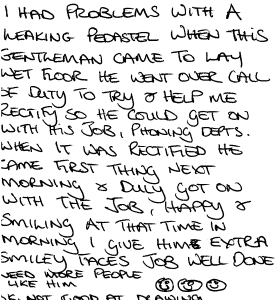 I HAD PROBLEMS WITH A
LEAKING PEDASTEL WHEN THIS
GENTLEMAN CAME TO LAY
WET FLOOR HE WENT OVER CALL
OF DUTY TO TRY & HELP ME
RECTIFY SO HE COULD GET ON
WITH HIS JOB, PHONING DEPTS.
WHEN IT WAS RECTIFIED HE
CAME FIRST THING NEXT
MORNING & DULY GOT ON
WITH THE JOB, HAPPY &
SMILING AT THAT TIME IN
MORNING I GIVE HIM EXTRA
SMILEY FACES JOB WELL DONE
NEED MORE PEOPLE
LIKE HIM
NOT GOOD AT DRAWING